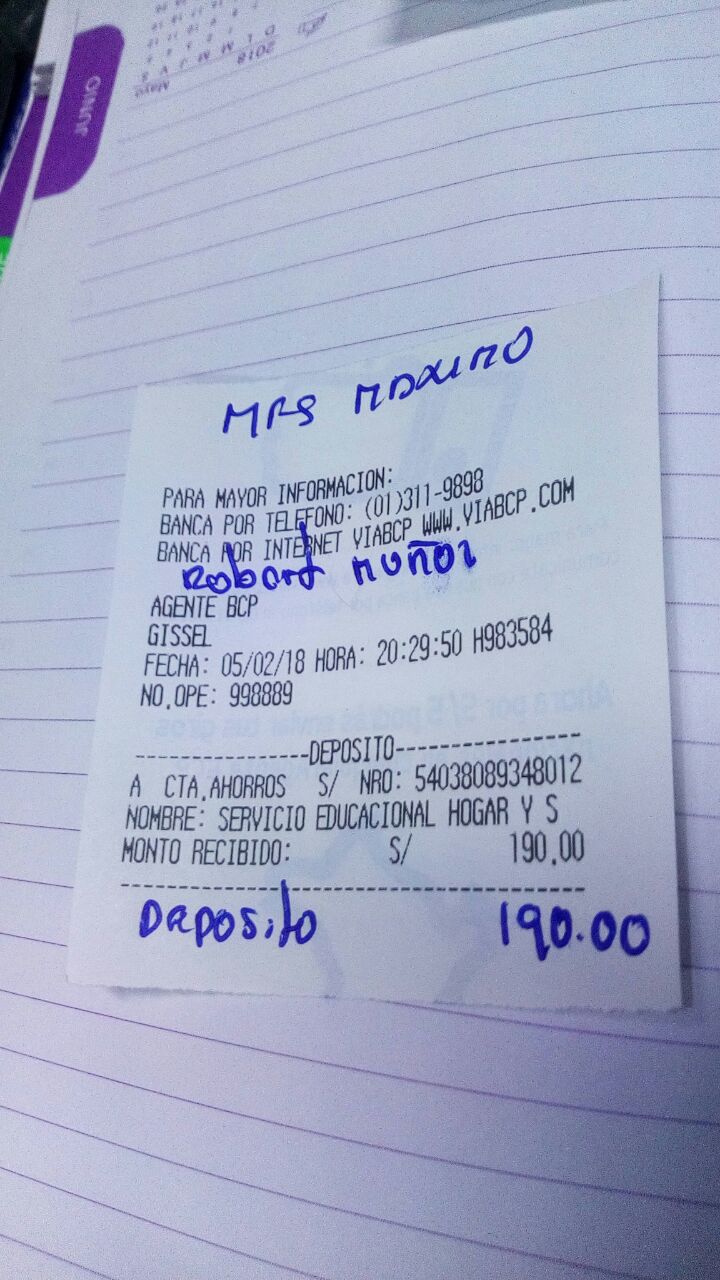 JUNIO
Mayo
2018
D L M M J V S
MPS MAXIMO
PARA MAYOR INFORMACION:
BANCA POR TELEFONO: (01)311-9898
BANCA POR INTERNET VIABCP WWW.VIABCP.COM
Robert MUÑOZ
AGENTE BCP
GISSEL
FECHA: 05/02/18 HORA: 20:29:50 H983584
NO.OPE: 998889
-----------------DEPOSITO-----------------
A CTA.AHORROS S/ NRO: 54038089348012
NOMBRE: SERVICIO EDUCACIONAL HOGAR Y S
MONTO RECIBIDO: S/ 190.00
Deposito 190.00